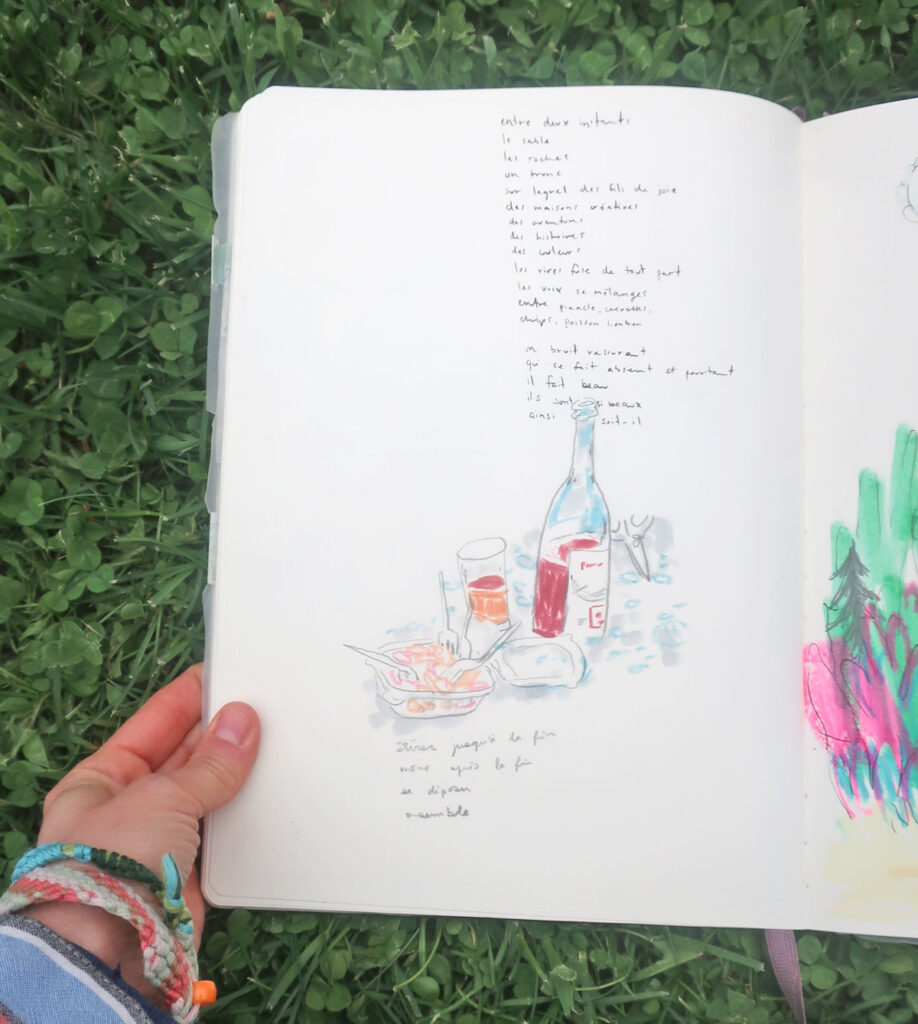 entre deux instants
le sable
les ruches
un tronc
sur lequel des fils de joie
des maisons créatives
des aventures
des histoires
des couleurs
les rires fuse de tout part
les voix se mélanges
entre pinacle, crevettes,
chips, poisson
un bruit rassurant
qui se fait absent et pourtant
il fait beau
ils sont si beaux
ainsi soit-il
étirer jusqu'à la fin
même après la fin
se déposer
ensemble